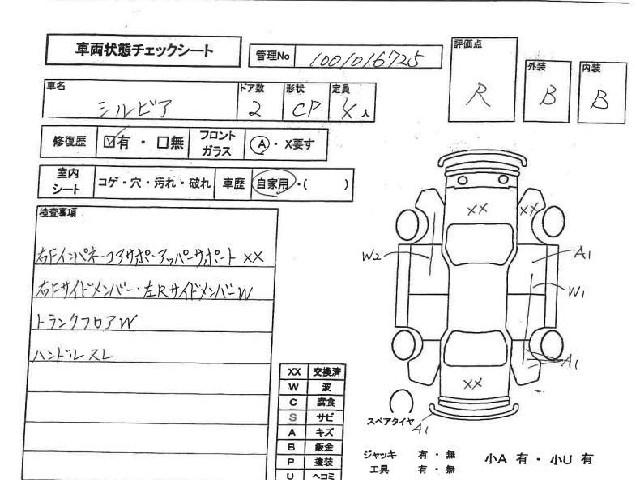 車両状態チェックシート
管理No 1001016725
評価点 R
外装 B
内装 B
車名 シルビア
ドア数 2
形状 CP
定員 4人
修復歴 ☑有・☐無
フロントガラス Ⓐ・X要す
室内シート コゲ・穴・汚れ・破れ
車歴 自家用・( )
検査事項
右Fインパネ・コアサポ・アッパーサポート XX
右Fサイドメンバー・左RサイドメンバーW
トランクフロアW
ハンドルスレ
XX XX
W2
A1
W1
A1
XX
A1
スペアタイヤ
XX 交換済
W 波
C 腐食
S サビ
A キズ
B 鈑金
P 塗装
U ヘコミ
ジャッキ 有・無
工具 有・無
小A 有・小U 有